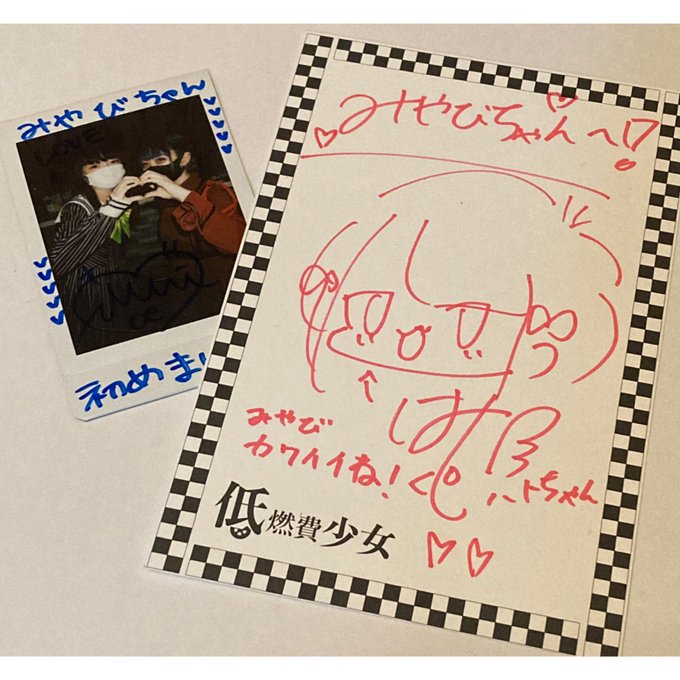 みやびちゃん
LOVE
初めま
みやびちゃんへ
みやび
カワイイね!
ハトちゃん
低燃費少女